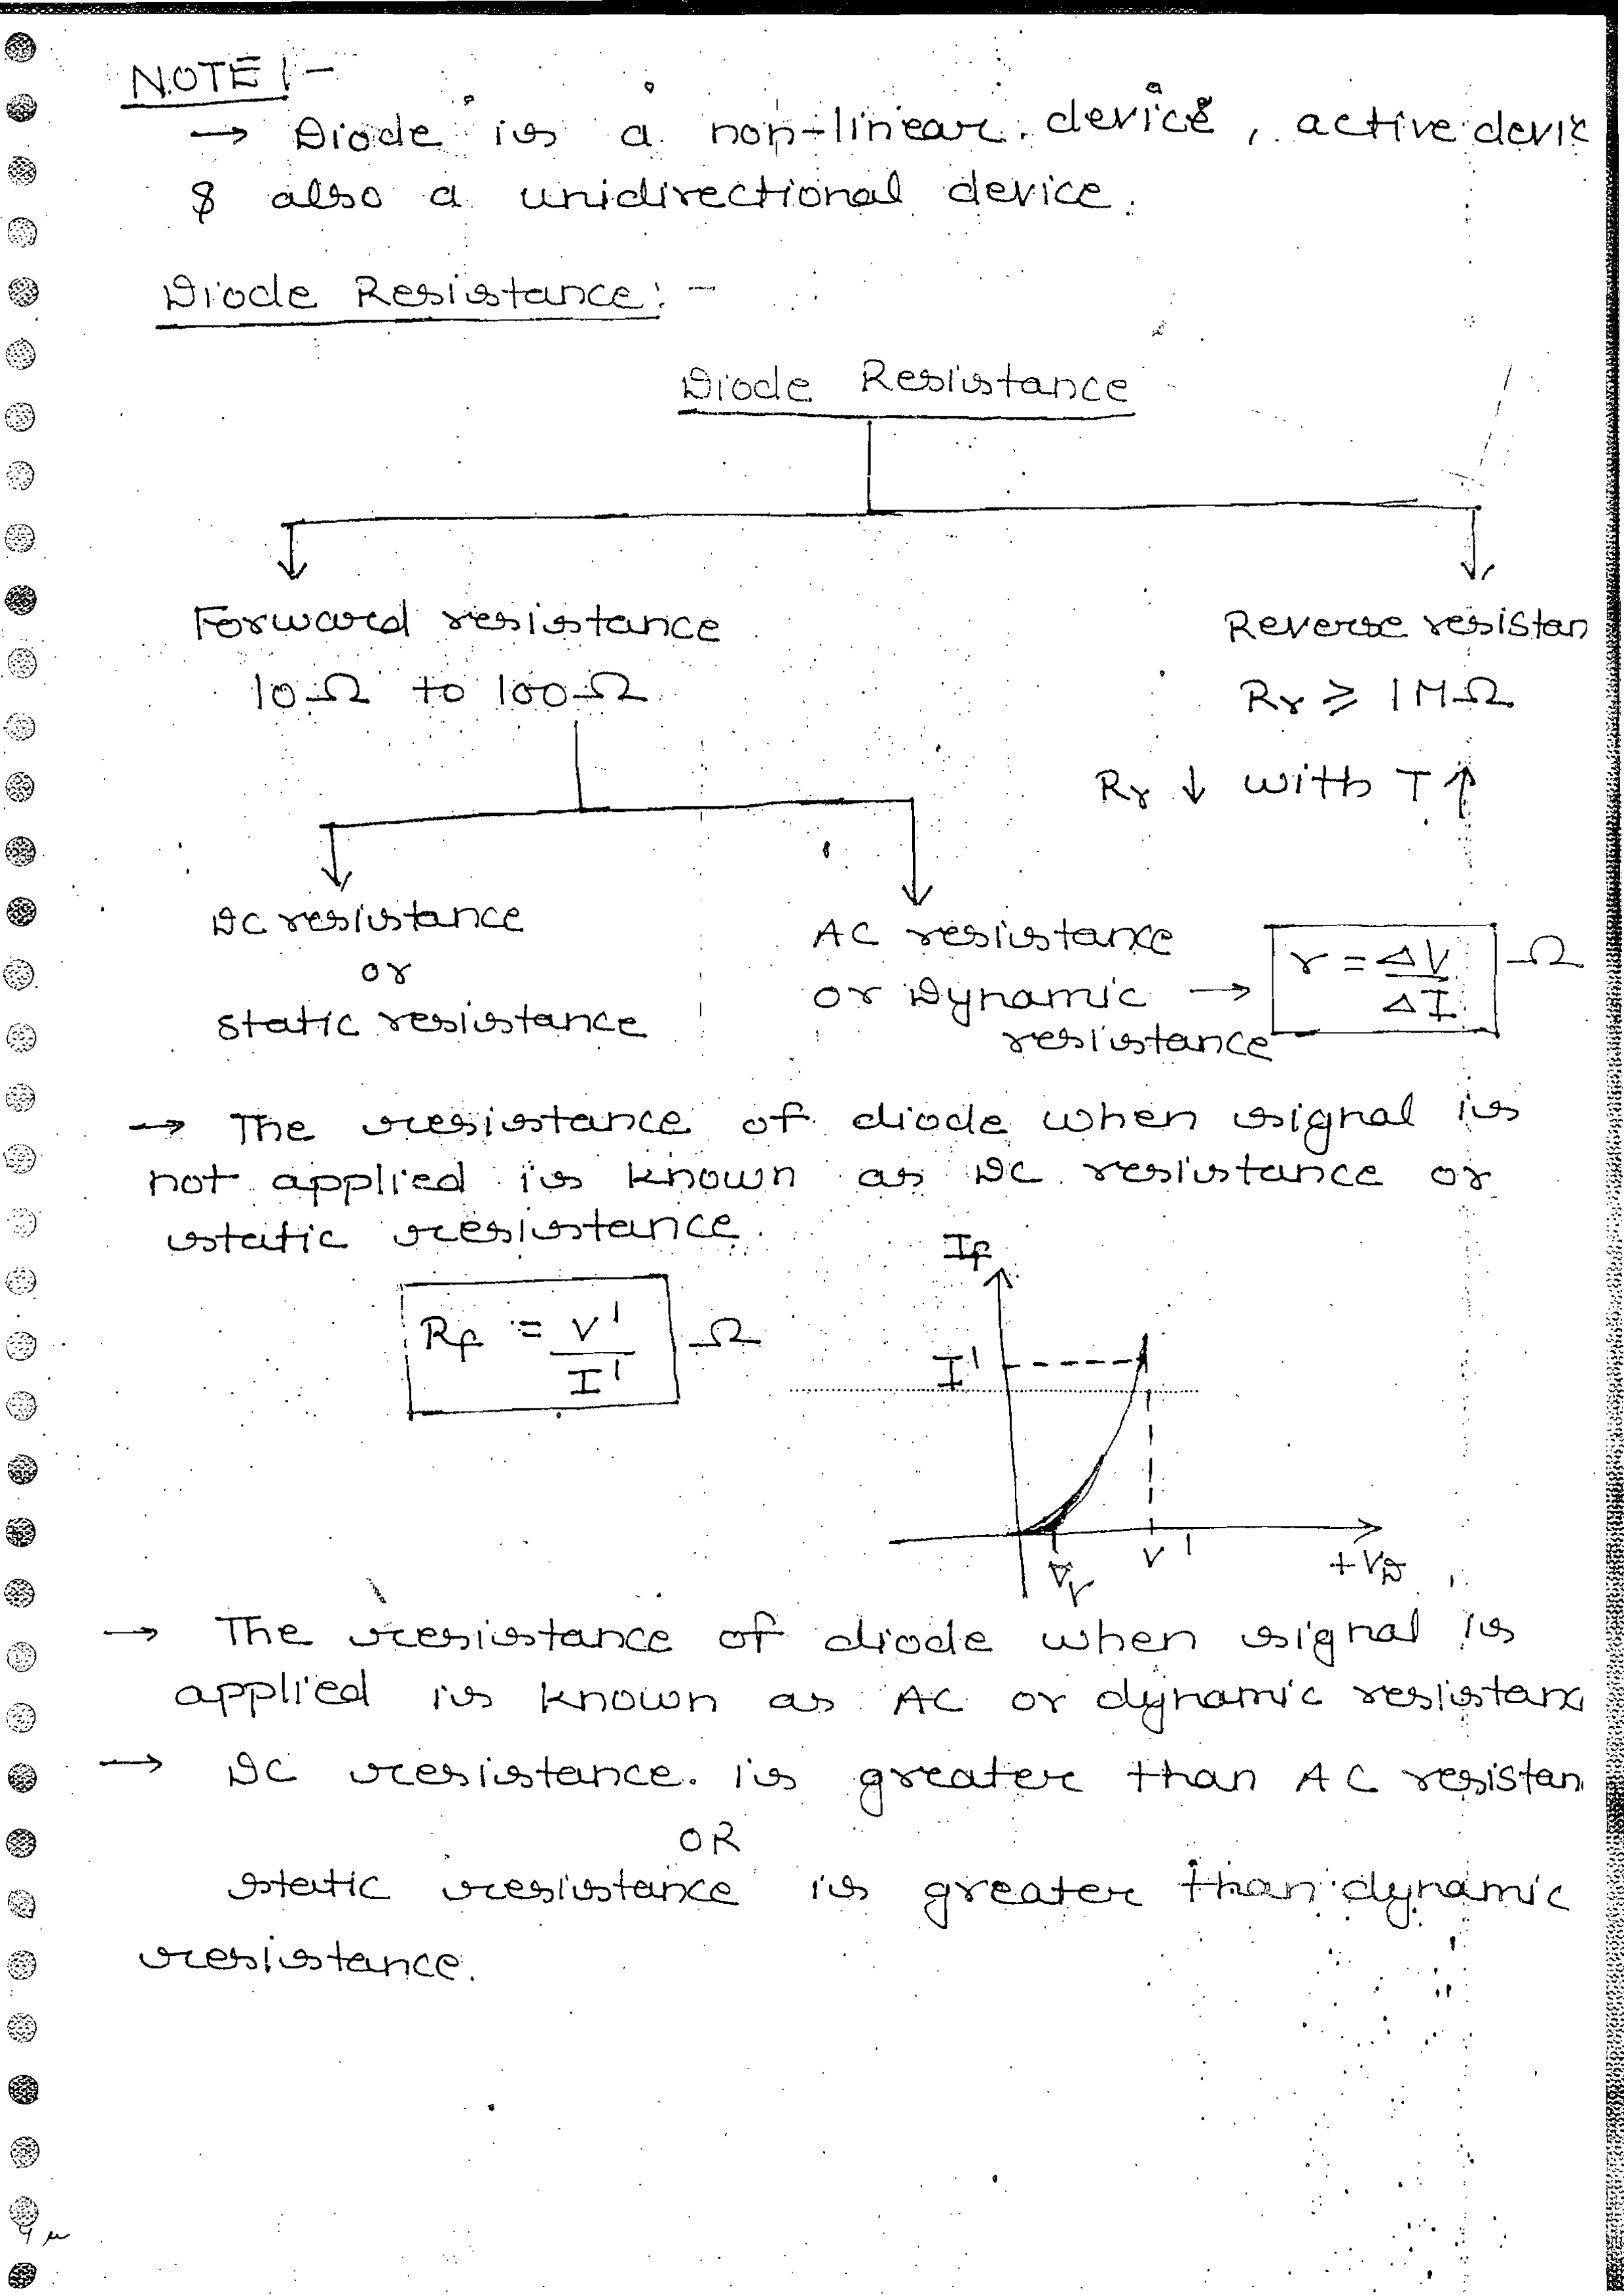 NOTE :-
→ Diode is a non-linear device, active devic
& also a unidirectional device.
Diode Resistance: -
Diode Resistance
Forward resistance
10Ω to 100Ω
Reverse resistan
Rr ≥ 1MΩ
Rr ↓ with T ↑
DC resistance
or
static resistance
AC resistance
or Dynamic →
resistance
r = ΔV/ΔI Ω
→ The resistance of diode when signal is
not applied is known as DC resistance or
static resistance.
Rf = V'/I' Ω
If
I'
Vγ
V'
+VD
→ The resistance of diode when signal is
applied is known as AC or dynamic resistanc
→ DC resistance. is greater than AC resistan
OR
static resistance is greater than dynamic
resistance.